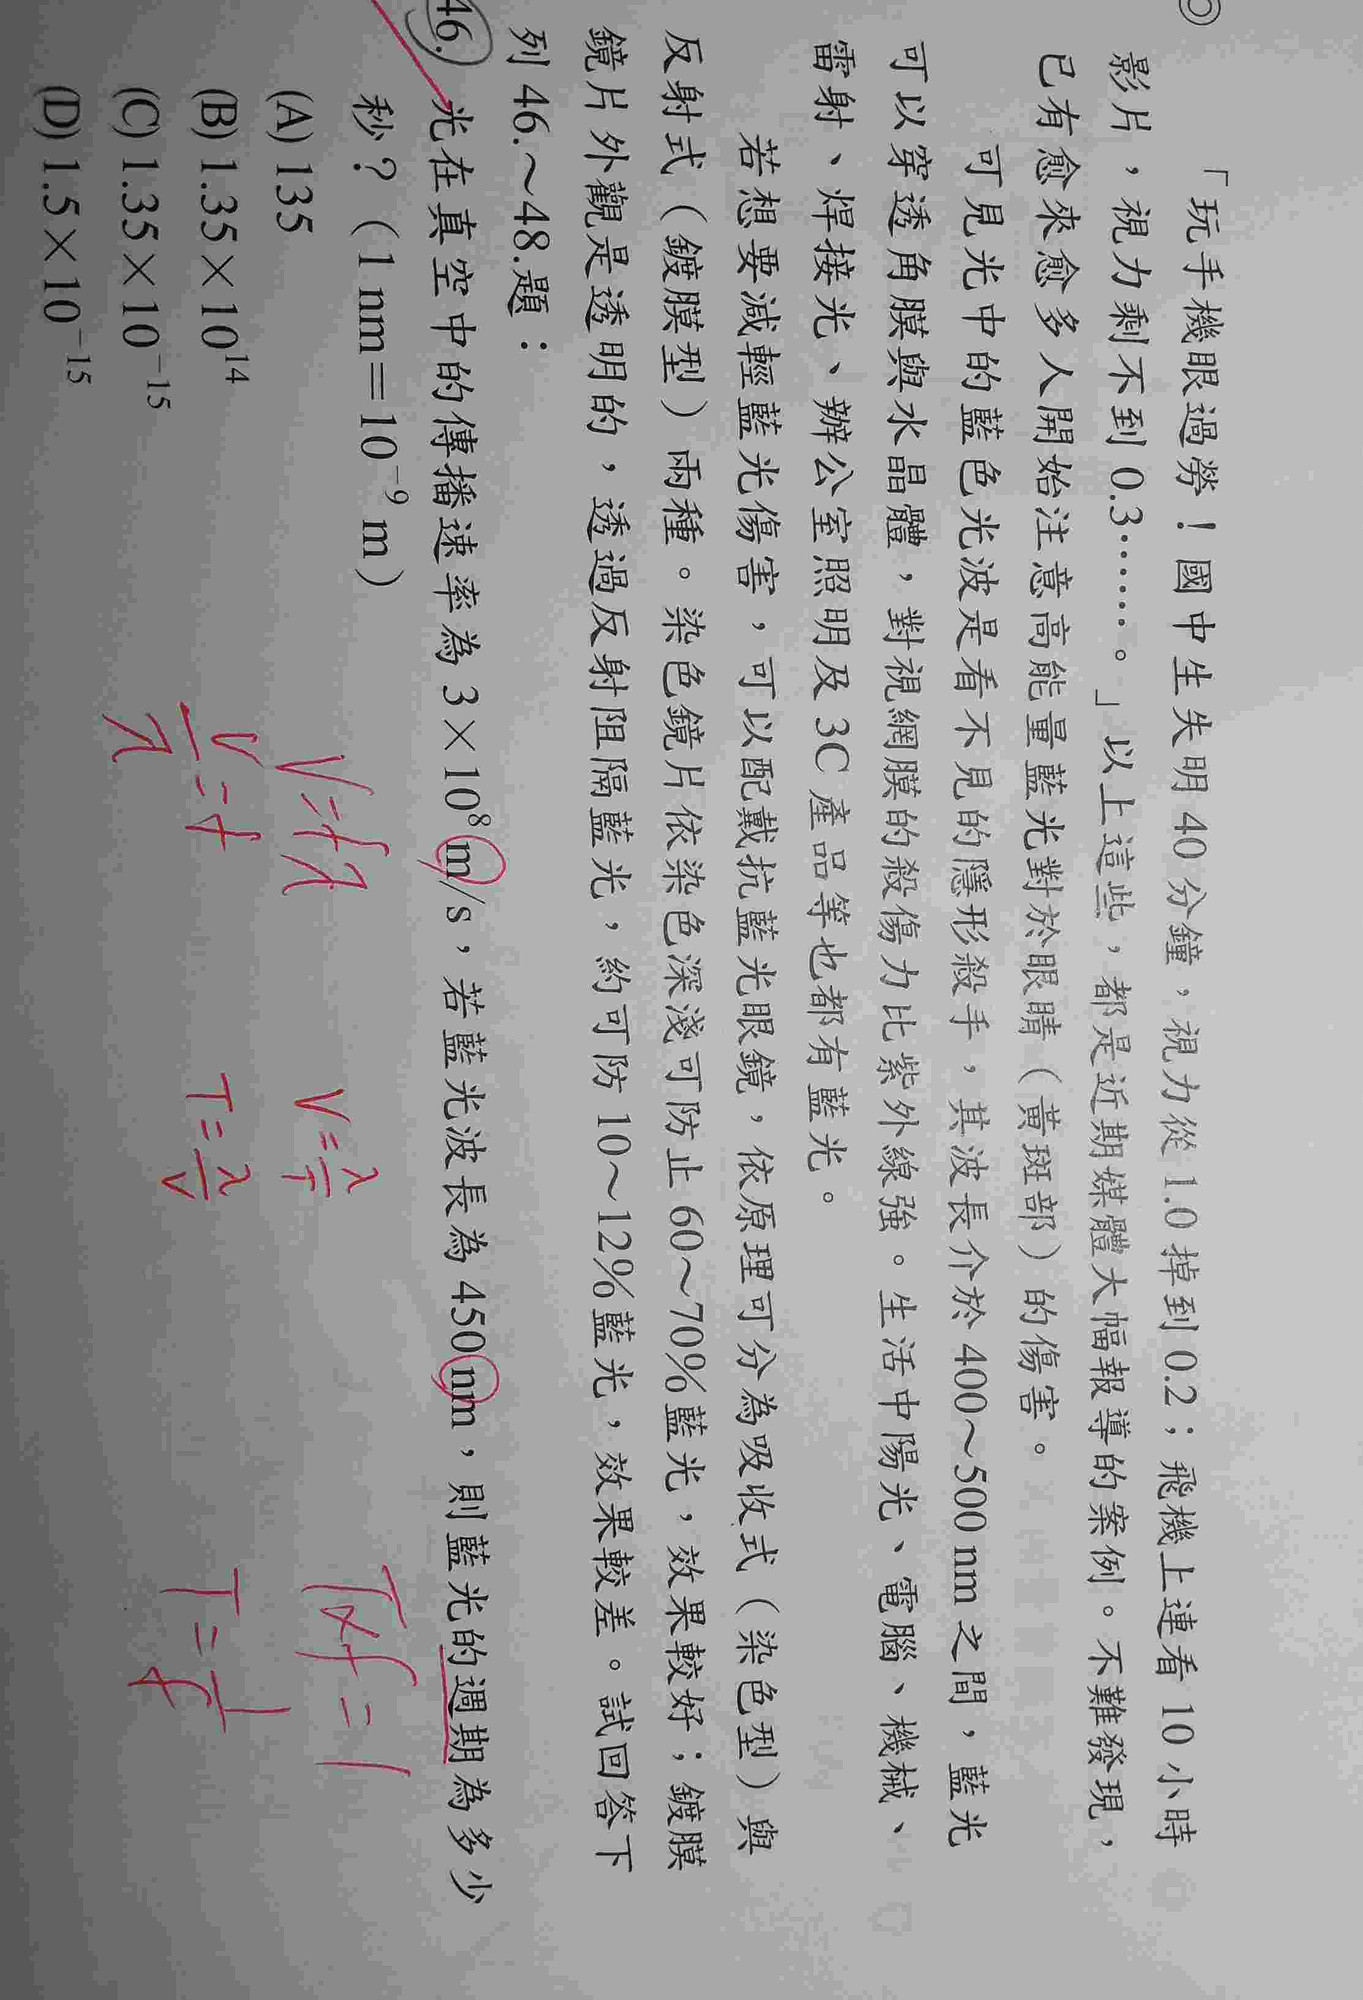 「玩手機眼過勞！國中生失明 40 分鐘，視力從 1.0 掉到 0.2；飛機上連看 10 小時
影片，視力剩不到 0.3……。」以上這些，都是近期媒體大幅報導的案例。不難發現，
已有愈來愈多人開始注意高能量藍光對於眼睛（黃斑部）的傷害。
可見光中的藍色光波是看不見的隱形殺手，其波長介於 400～500 nm 之間，藍光
可以穿透角膜與水晶體，對視網膜的殺傷力比紫外線強。生活中陽光、電腦、機械、
雷射、焊接光、辦公室照明及 3C 產品等也都有藍光。
若想要減輕藍光傷害，可以配戴抗藍光眼鏡，依原理可分為吸收式（染色型）與
反射式（鍍膜型）兩種。染色鏡片依染色深淺可防止 60～70％藍光，效果較好；鍍膜
鏡片外觀是透明的，透過反射阻隔藍光，約可防 10～12％藍光，效果較差。試回答下
列 46.～48.題：
46. 光在真空中的傳播速率為 3×10⁸ m/s，若藍光波長為 450 nm，則藍光的週期為多少
秒？（1 nm＝10⁻⁹ m）
(A) 135
(B) 1.35×10¹⁴
(C) 1.35×10⁻¹⁵
(D) 1.5×10⁻¹⁵
V=fλ
V/λ=f
V=λ/T
T=λ/V
T×f=1
T=1/f